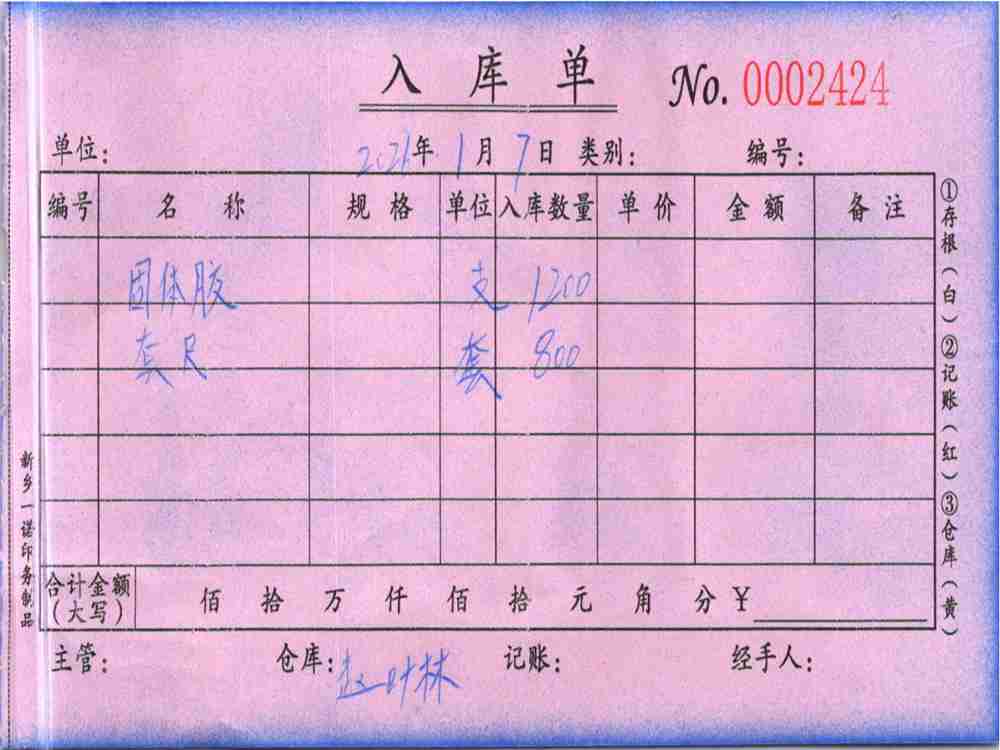 入库单 No. 0002424
单位： 2026年 1月 7日 类别： 编号：
编号 名称 规格 单位 入库数量 单价 金额 备注
固体胶 支 1200
套尺 套 800
合计金额（大写） 佰 拾 万 仟 佰 拾 元 角 分 ¥
主管： 仓库：赵叶林 记账： 经手人：
①存根（白）②记账（红）③仓库（黄）
新乡一诺印务制品